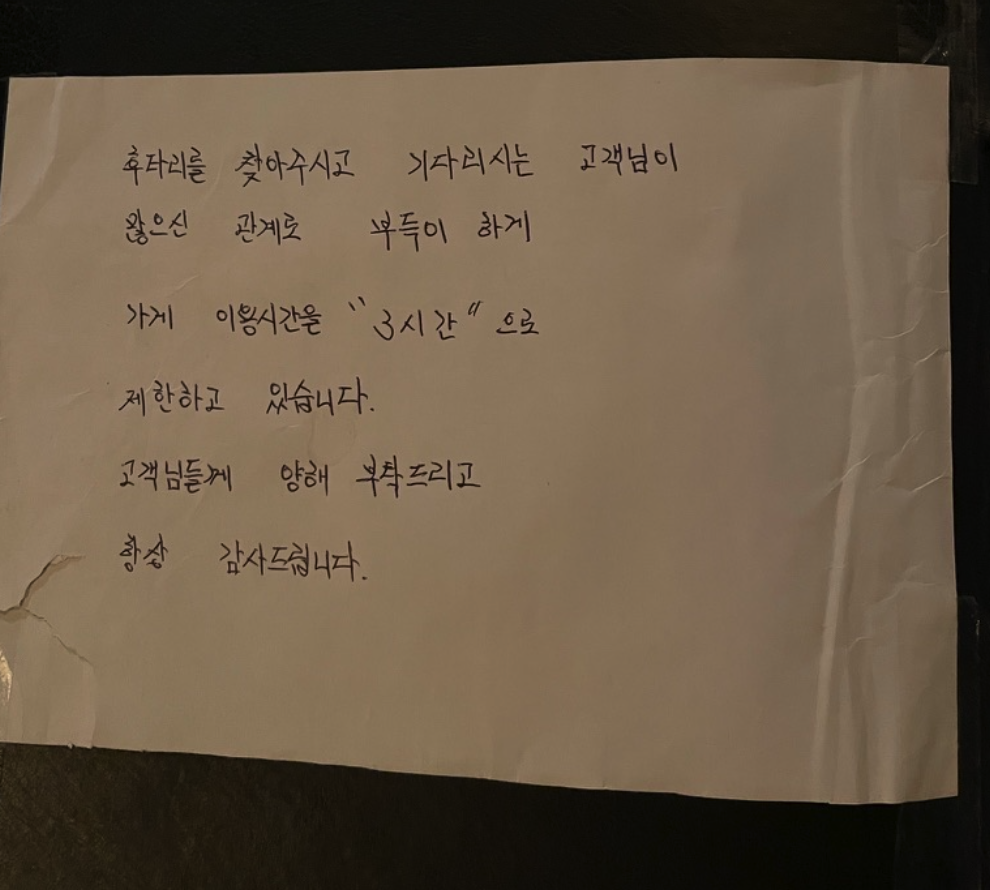 후타리를 찾아주시고 기다리시는 고객님이
많으신 관계로 부득이 하게
가게 이용시간을 "3시간"으로
제한하고 있습니다.
고객님들께 양해 부탁드리고
항상 감사드립니다.